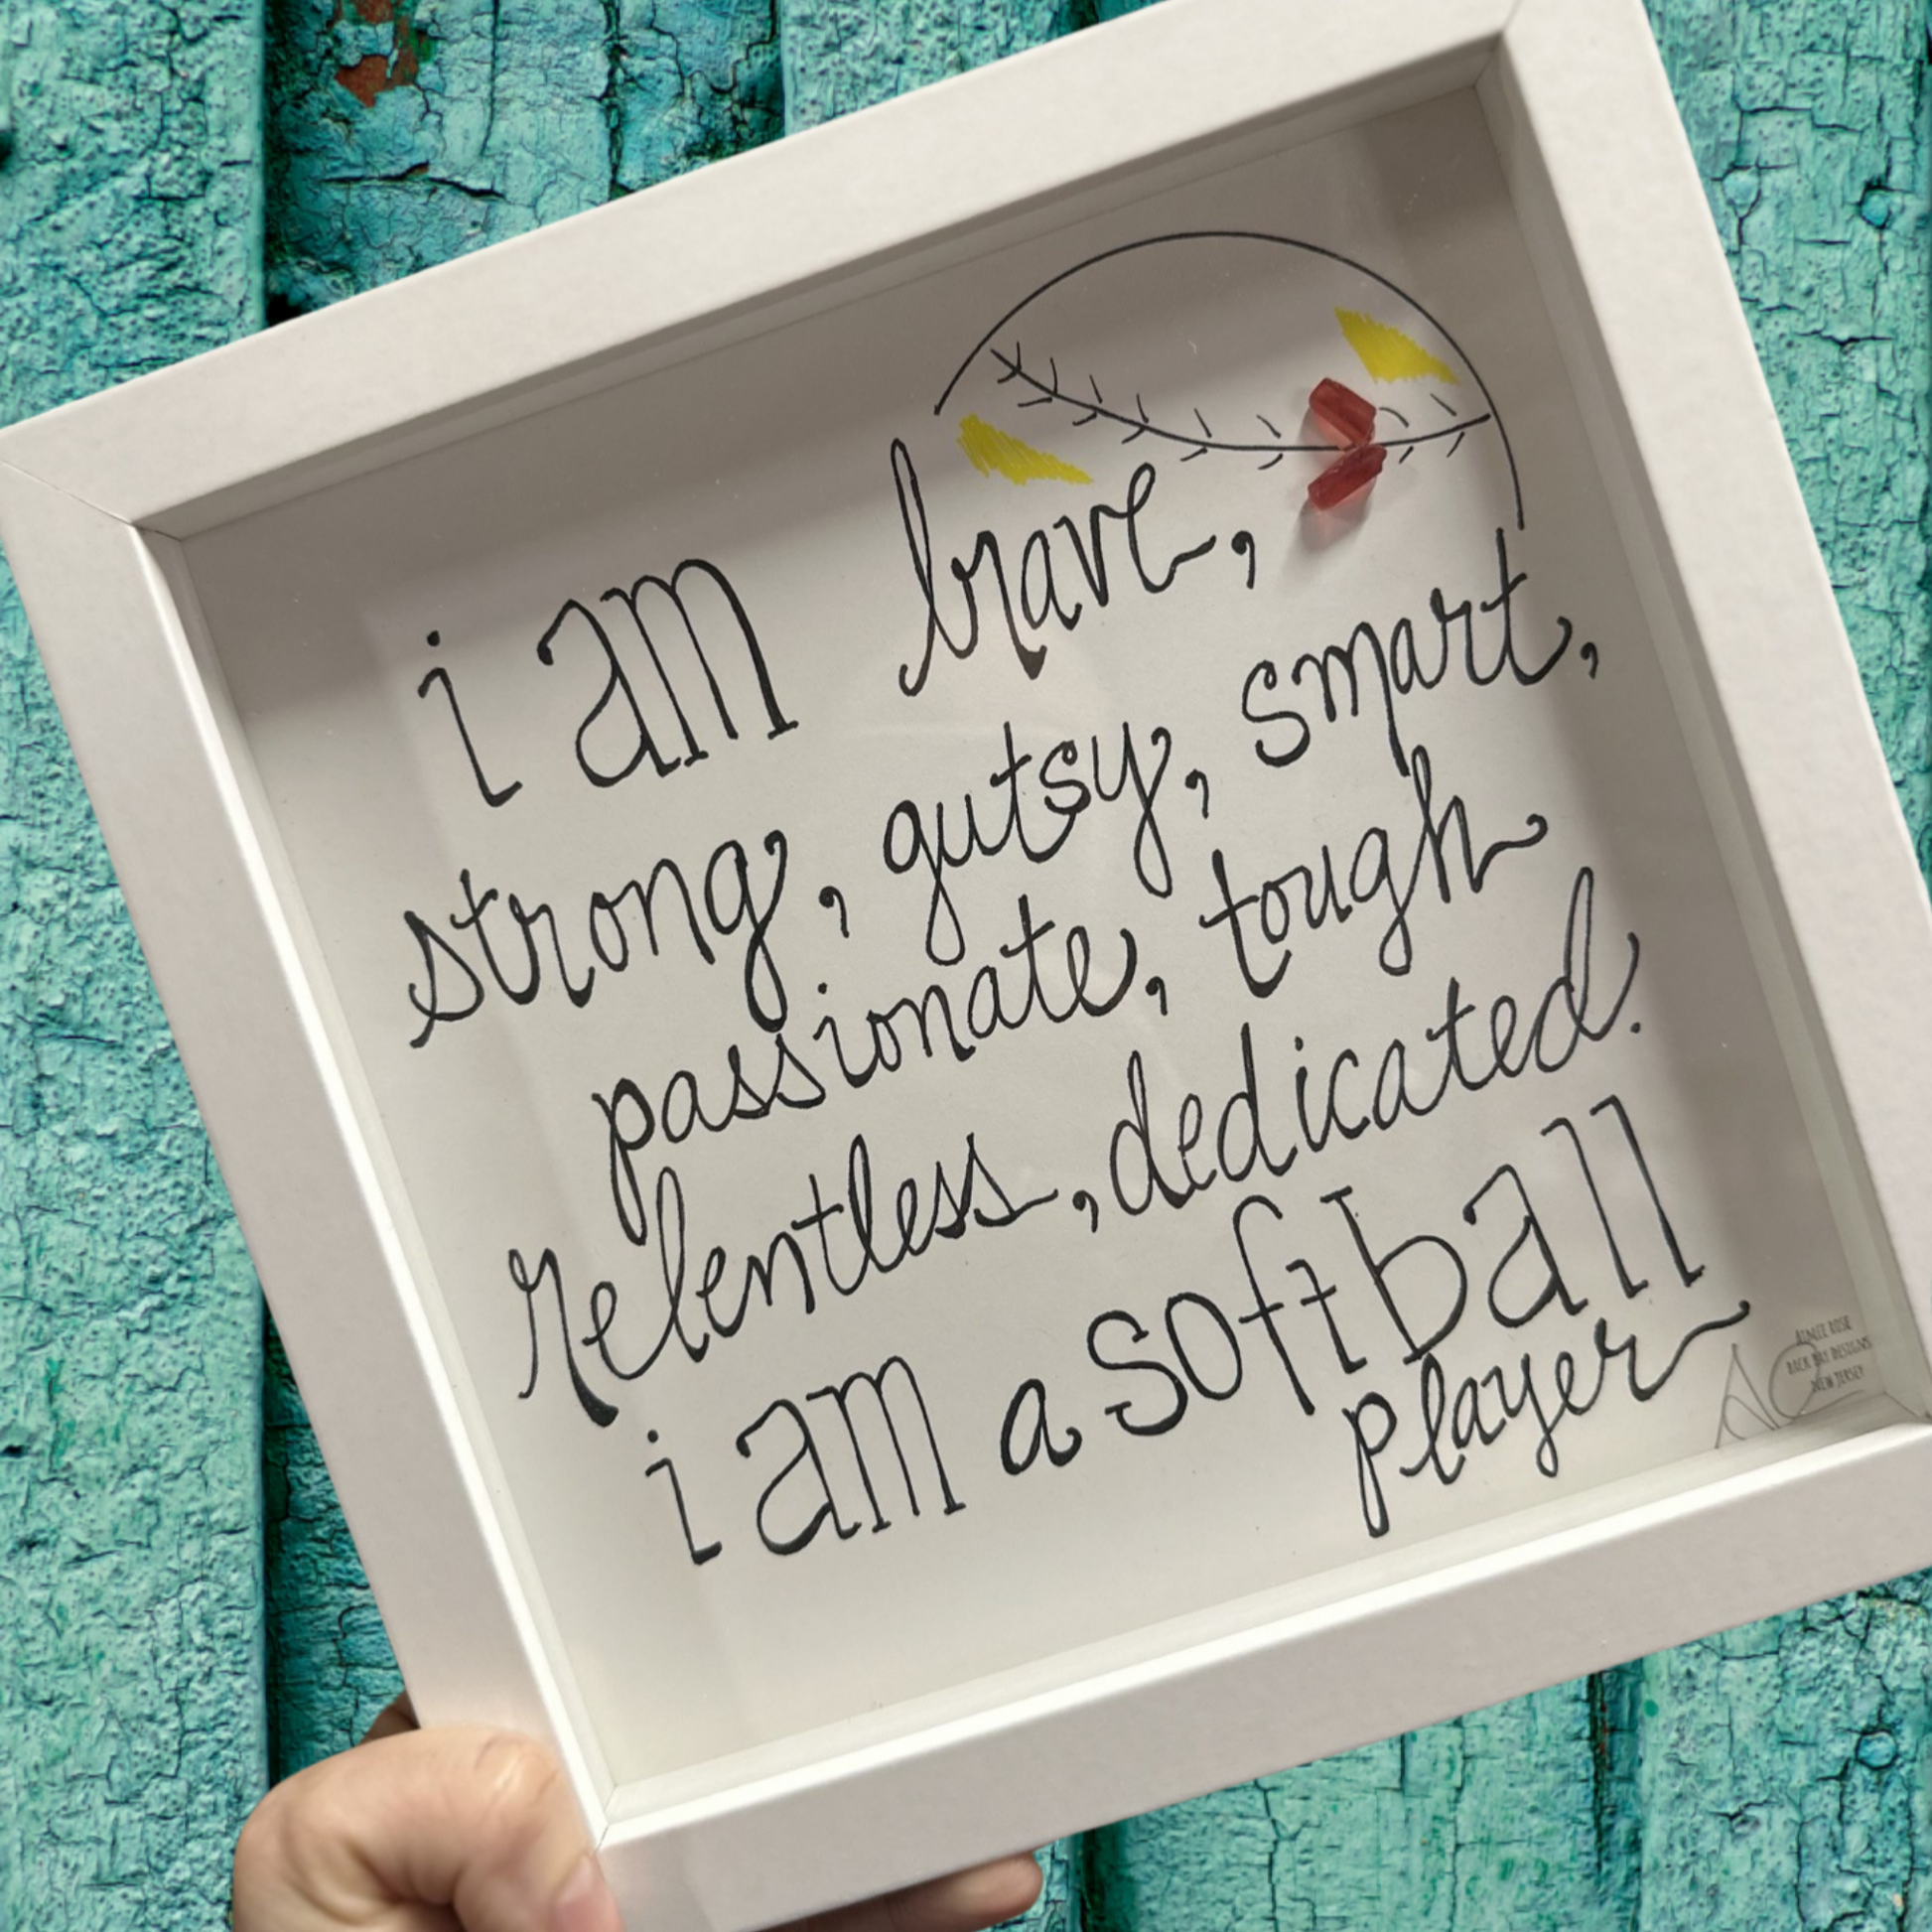 i am brave,
strong, gutsy, smart,
passionate, tough
relentless, dedicated.
i am a softball
player
AIMEE ROSE
BACK BAY DESIGNS
NEW JERSEY